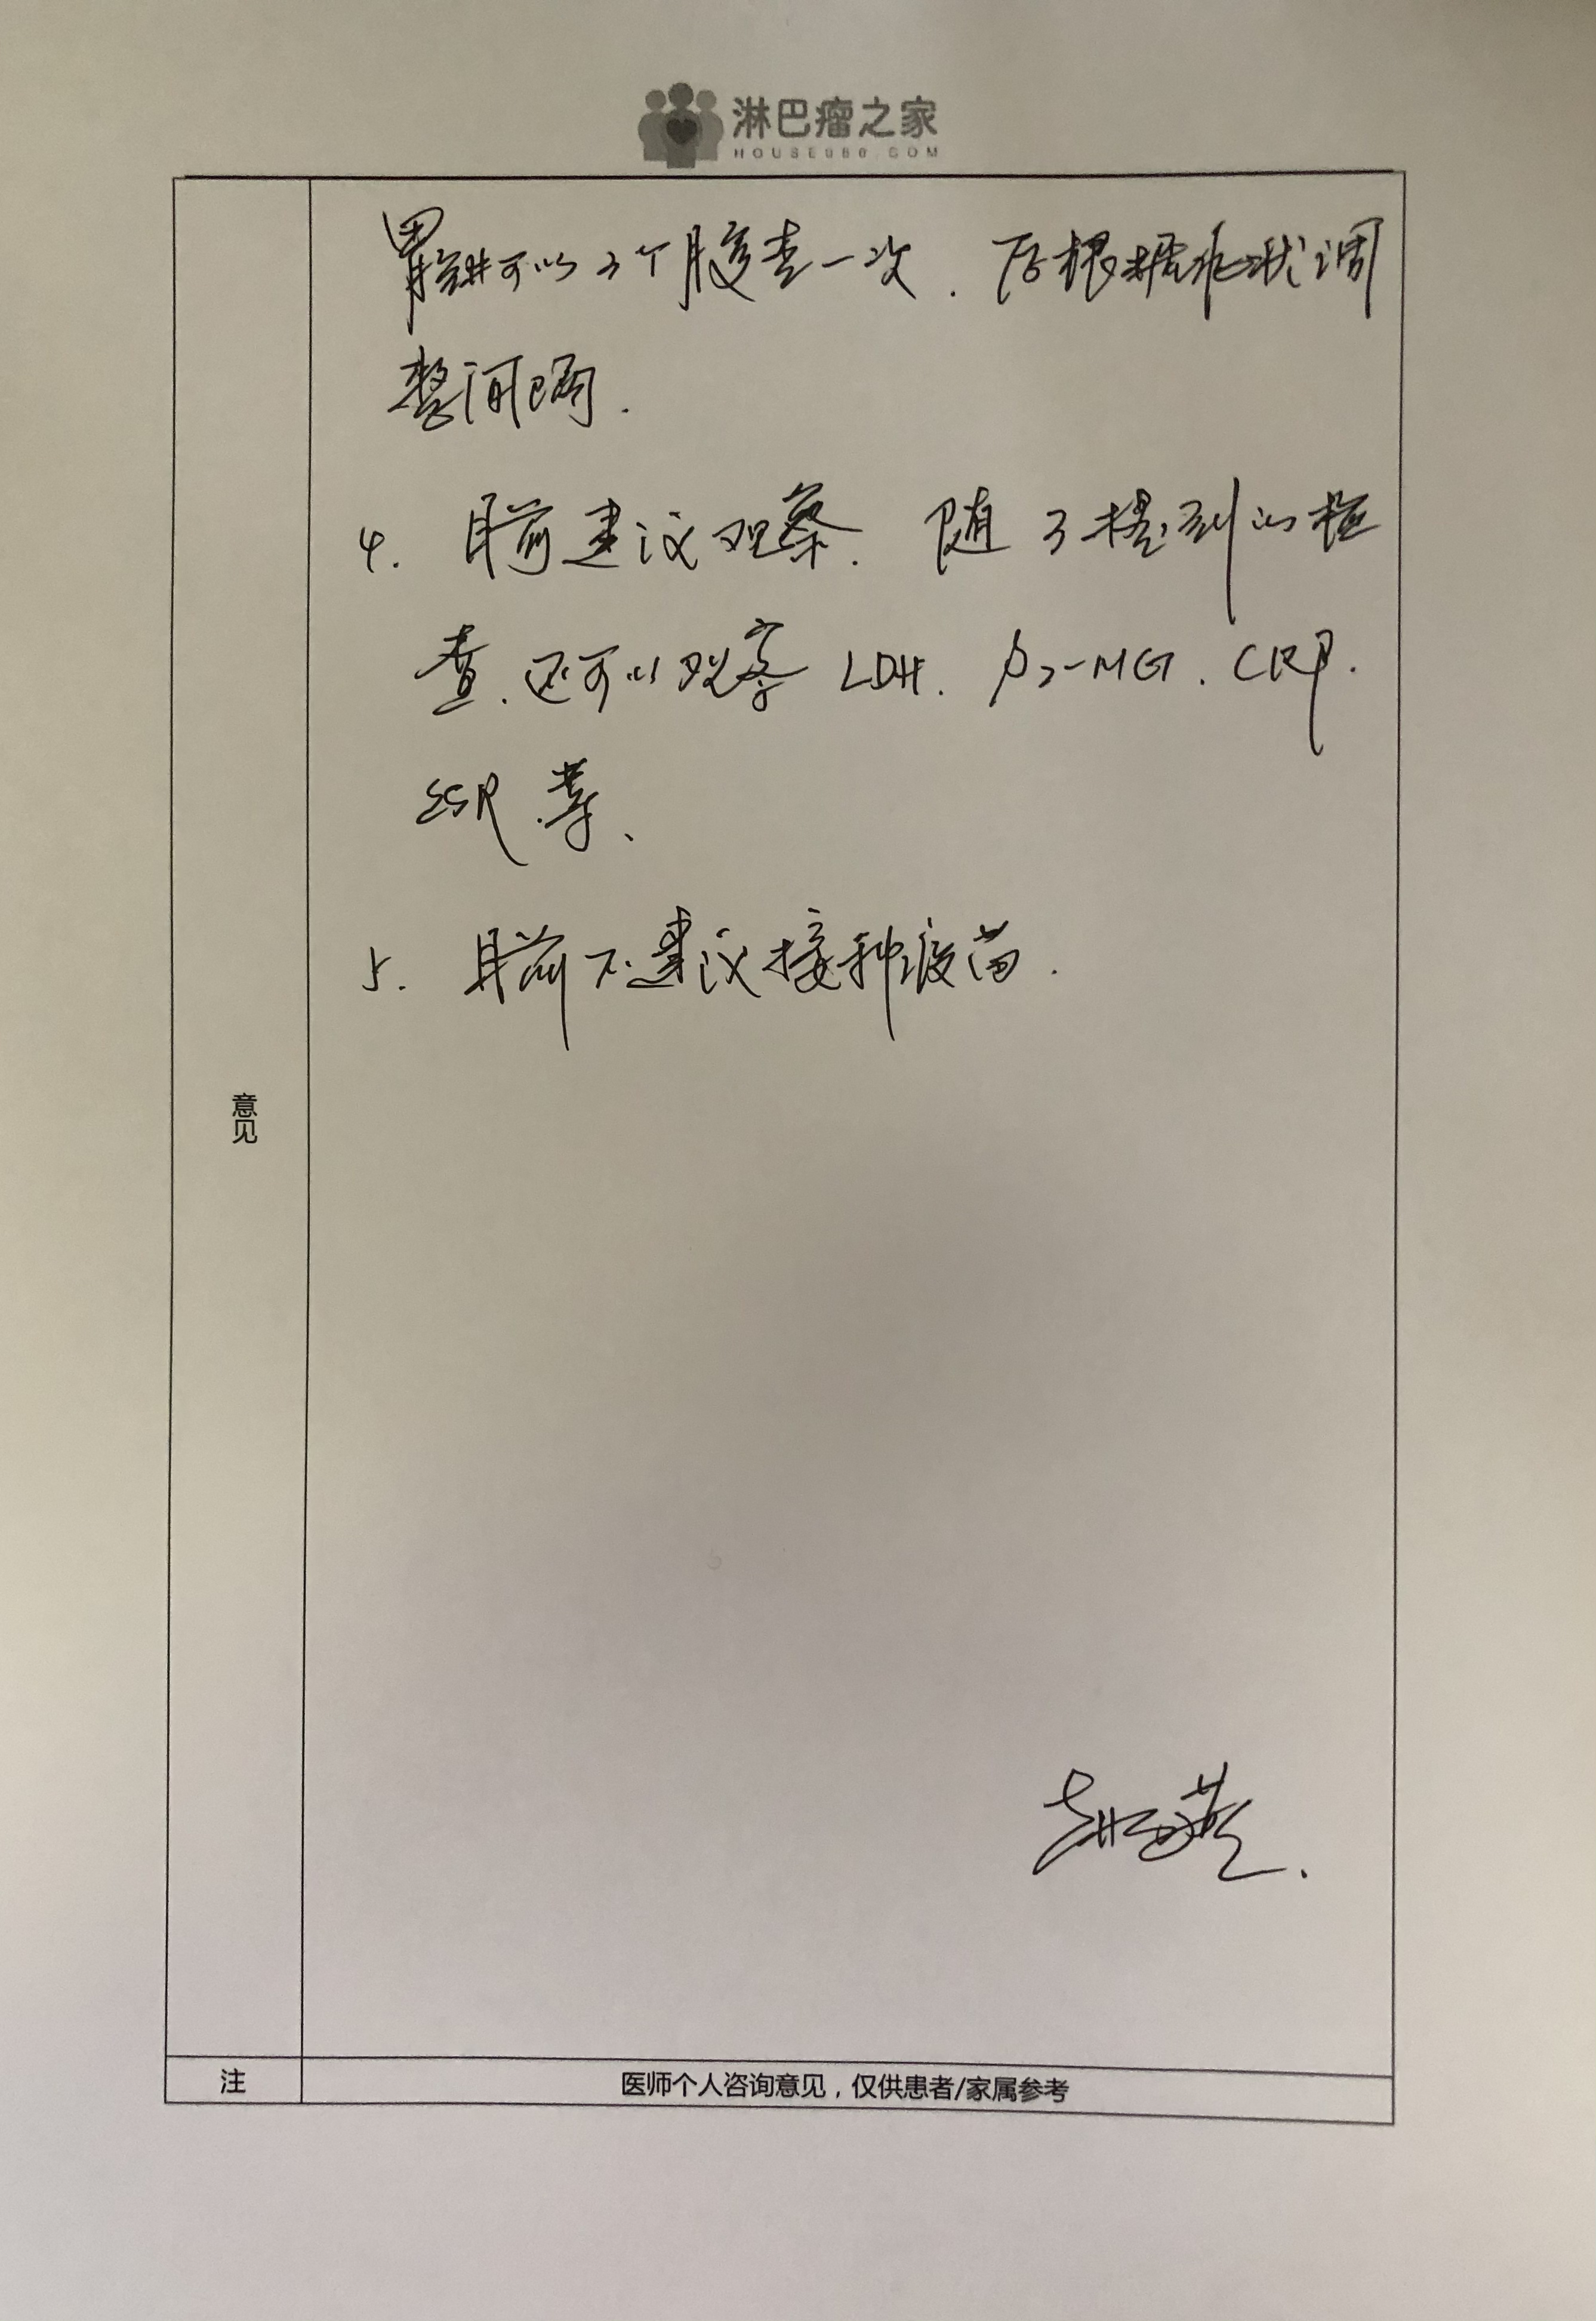 淋巴瘤之家
HOUSE086.COM
胃镜可以3个月复查一次. 后根据症状调
整间隔.
4. 目前建议观察. 随 3 提到的检
查. 还可以观察 LDH. β2-MG. CRP.
ESR. 等、
5. 目前不建议接种疫苗.
意见
注
医师个人咨询意见，仅供患者/家属参考